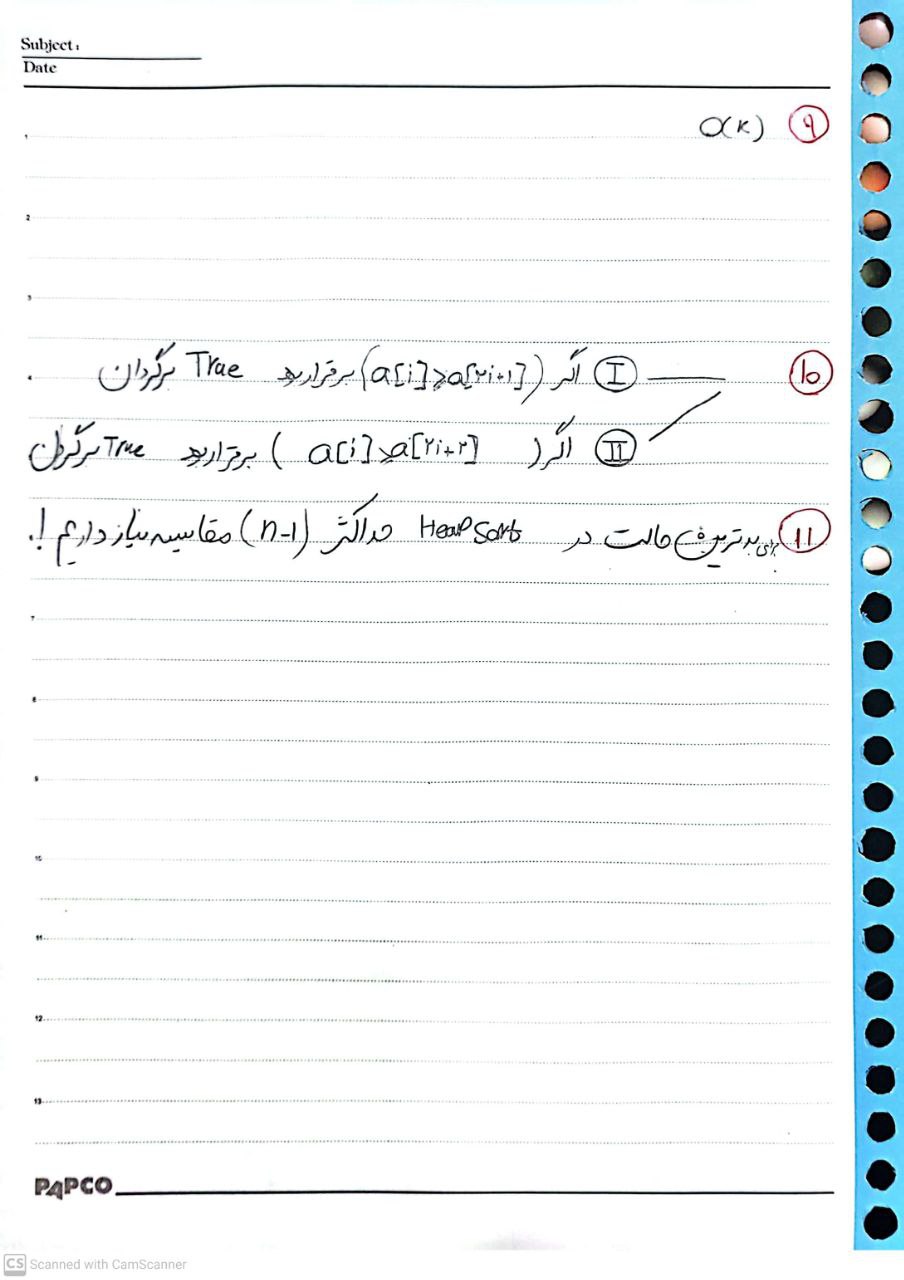 Subject:
Date
۹ O(K)
10 I اگر (a[i]≥a[۲i+۱]) برقرار بود True برگردان
II اگر (a[i]≥a[۲i+۲]) برقرار بود True برگردان
11 برای بدترین حالت در Heap Sort حداکثر (n-1) مقایسه نیاز داریم!.
1
2
3
4
7
8
9
10
11
12
13
PAPCO
CS Scanned with CamScanner